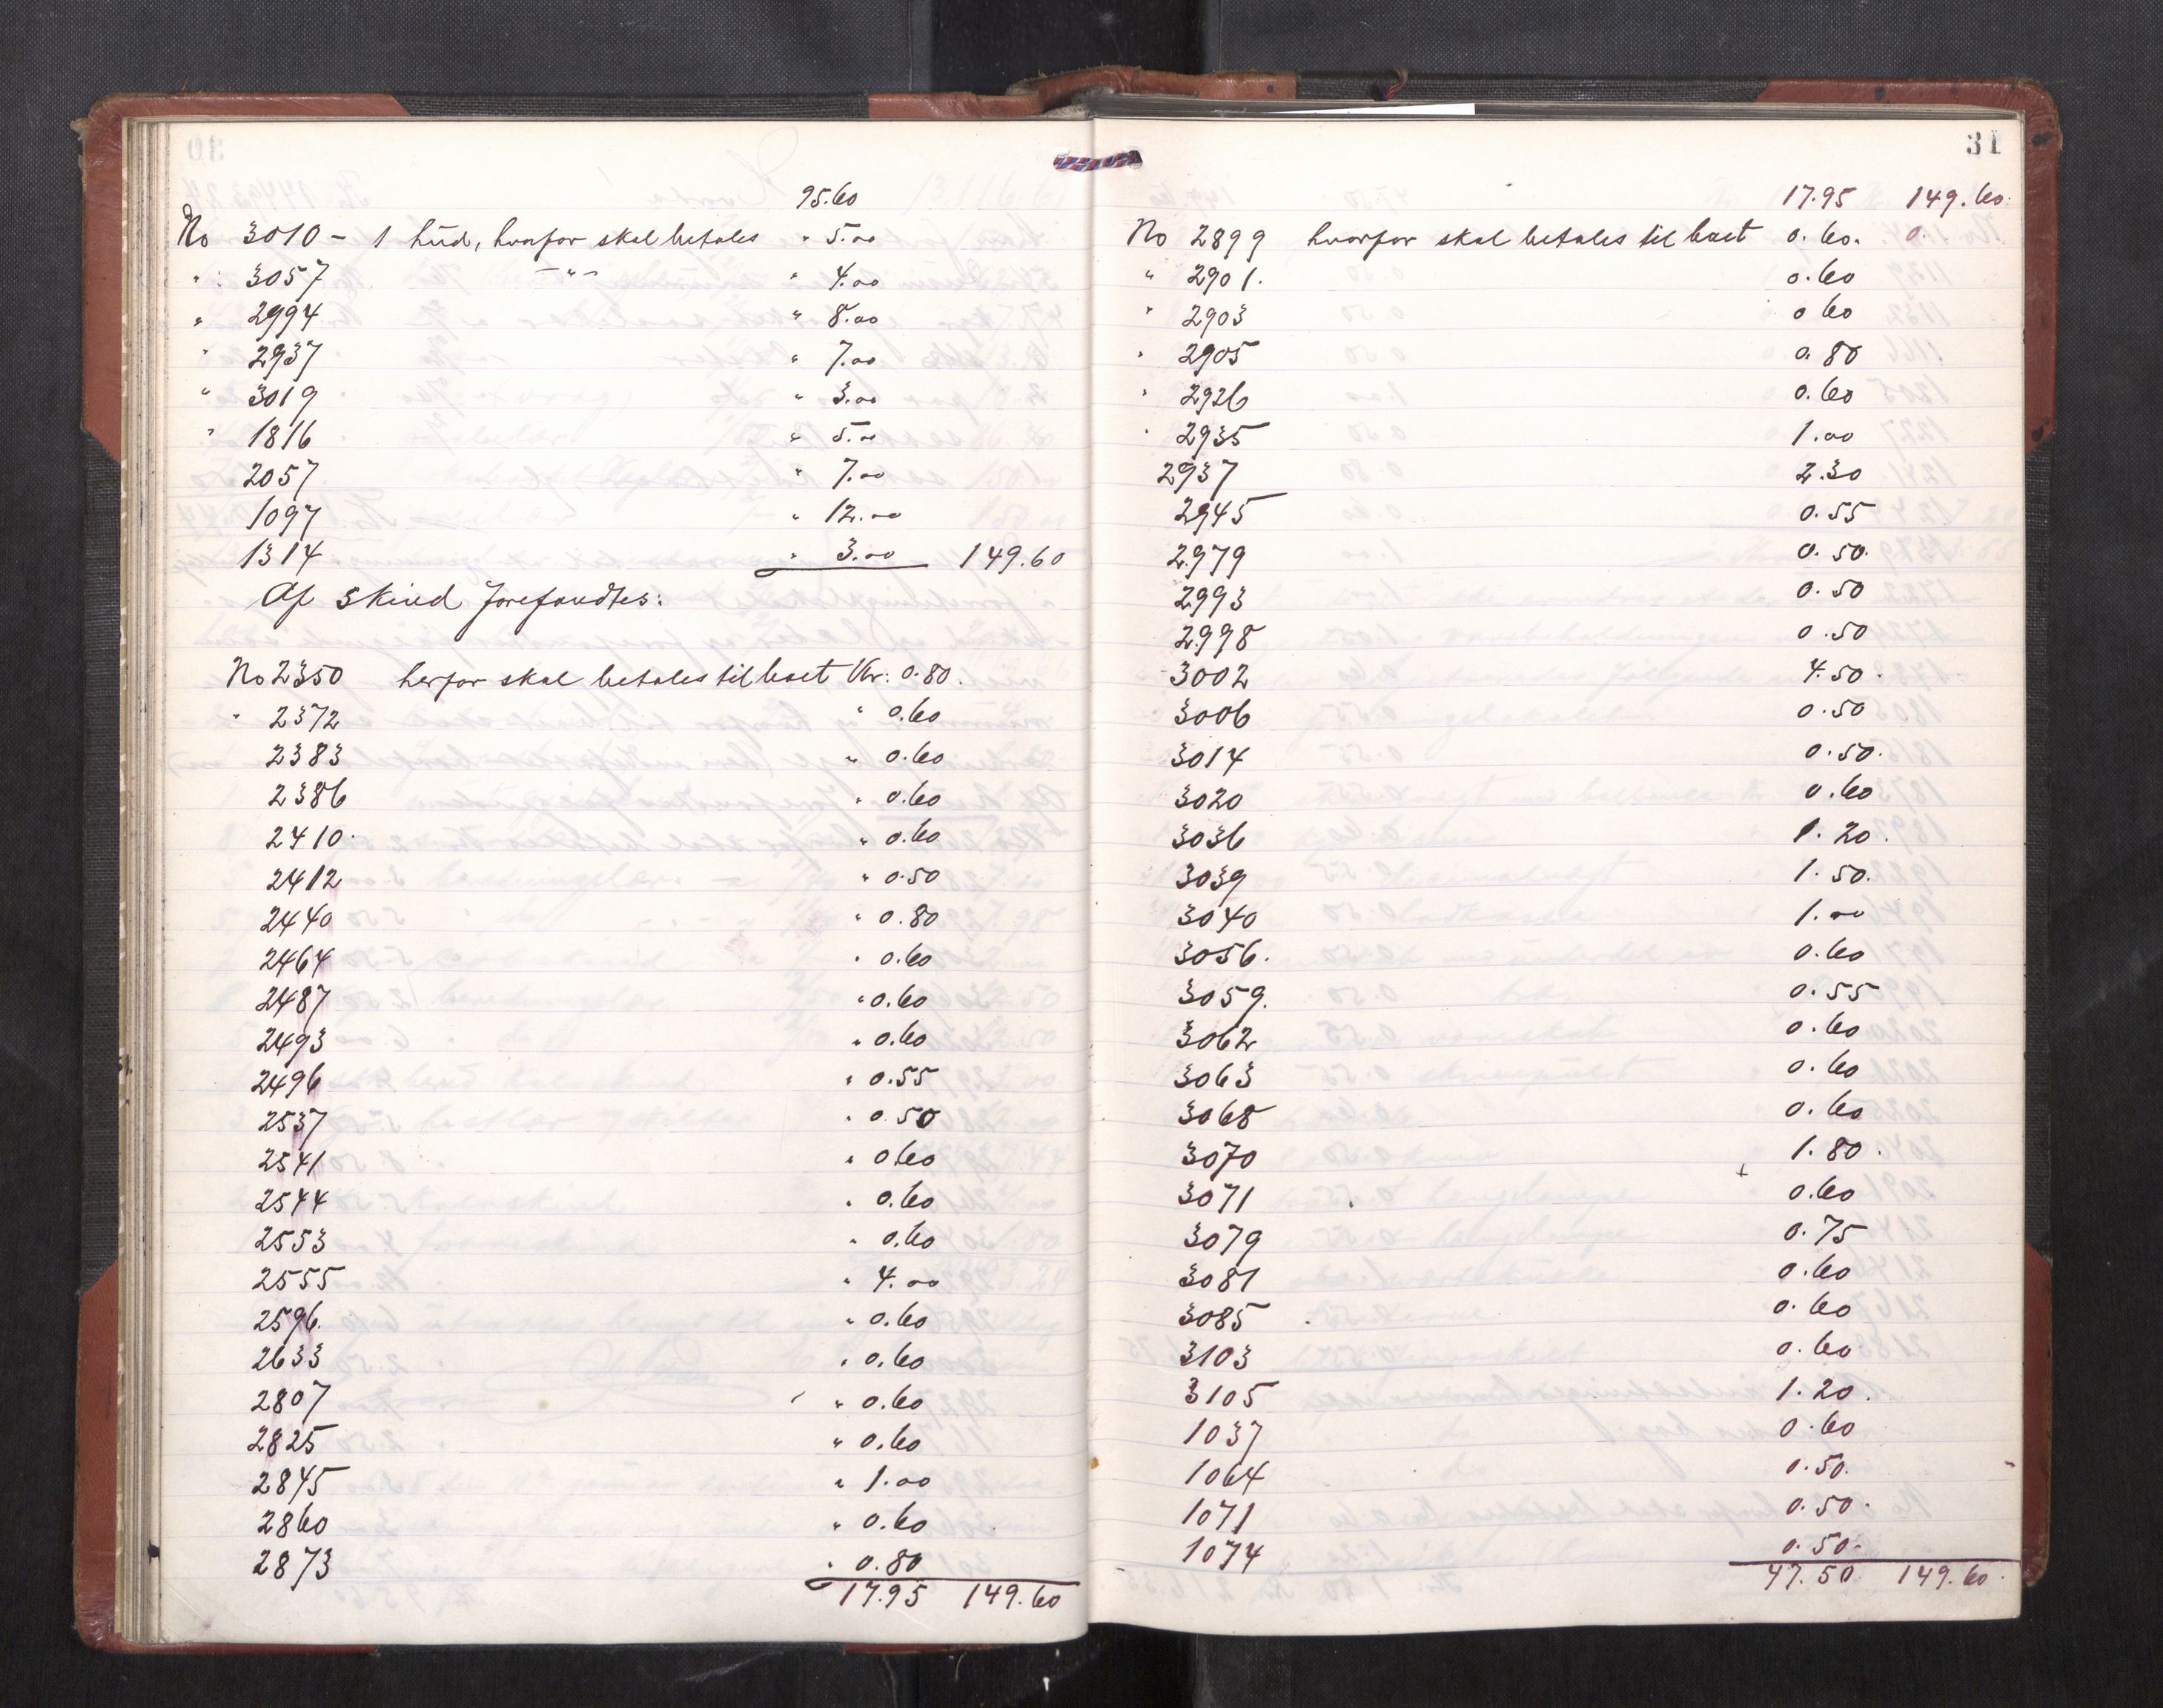 95.60
No 3010 - 1 hud, hvorfor skal betales " 5.00
" 3057 -"- " 4.00
" 2994 " 8.00
" 2937 " 7.00
" 3019 " 3.00
" 1816 " 5.00
2057 " 7.00
1097 " 12.00
1314 " 3.00 149.60
Af skind forefandtes:
No 2350 herfor skal betales til boet Kr: 0.80.
" 2372 " 0.60
2383 " 0.60
2386 " 0.60
2410. " 0.60
2412 " 0.50
2440 " 0.80
2464 " 0.60
2487 " 0.60
2493 " 0.60
2496 " 0.55
2537 " 0.50
2541 " 0.60
2544 " 0.60
2553 " 0.60
2555 " 4.00
2596. " 0.60
2633 " 0.60
2807 " 0.60
2825 " 0.60
2845 " 1.00
2860 " 0.60
2873 " 0.80
17.95 149.60
31
17.95 149.60.
No 2899 hvorfor skal betales til boet 0.60. 0.
" 2901. 0.60
" 2903 0 60
" 2905 0.80
" 2926 0.60
" 2935 1.00
2937 2.30
2945 0.55
2979 0.50.
2993 0.50
2998 0.50
3002 4.50.
3006 0.50
3014 0.50.
3020 0.60
3036 1.20.
3039 1.50.
3040 1.00
3056. 0.60
3059. 0.55
3062 0.60
3063 0.60
3068 0.60
3070 1.80.
3071 0.60
3079 0.75
3081 0.60
3085 0.60
3103 0.60
3105 1.20.
1037 0.60
1064 0.50.
1071 0.50.
1074 0.50.
47.50 149.60.